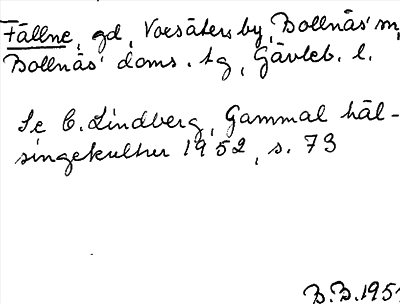 Fällne, gd, Voxsäters by, Bollnäs' sn,
Bollnäs' doms. tg, Gävleb. l.
Se C. Lindberg, Gammal häl-
singekultur 1952, s. 73
B.B. 195